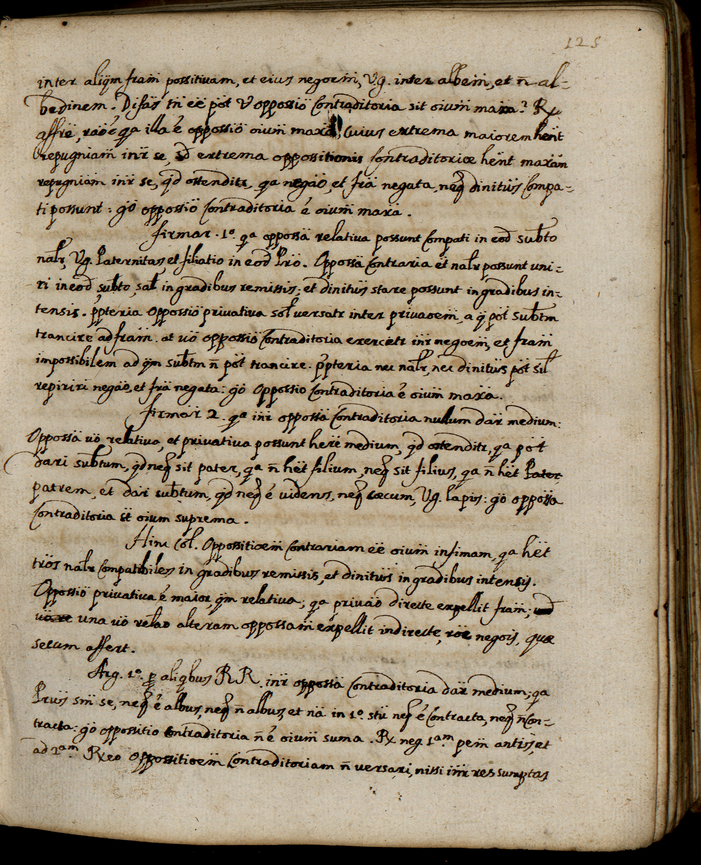 125
inter aliqm fram possitivam, et eius negoem, Vg. inter albem, et ñ al-
bedinem. Disas tñ eē pot V oppossio Contraditoria sit oium maxa? R
affre, rao é qa illa é oppossio oium maxa, Cuius extrema maiorem hent
repugniam inr se, sd extrema oppositionis Contraditoriæ hent maxam
repugniam inr se, qd ostenditr, qa negao, et fra negata, neq dinitus Compa-
ti possunt: go oppossio Contraditoria é oium maxa.
firmar. 1o. qa oppossa relativa possunt Compati in eod subto
nalr, Vg. Paternitas et filiatio in eod Pro. Oppossa Contraria et nalr possunt uni-
ri in eod subto, salt in gradibus remissis: et dinitus stare possunt in gradibus in-
tensis. ppteria oppossio privativa sol versatr inter privaoem, a q pot subtm
trancire ad fram. at vo oppossio Contraditoria exercetr inr negoem, et fram
impossibilem ad qm subtm ñ pot trancire. ppteria nec nalr, nec dinitus pot sil
repiriri negao, et fra negata: go oppossio Contraditoria é oium maxa.
firmar 2. qa inr oppossa Contraditoria nulum dar medium:
Oppossa vo relativa, et privativa possunt here medium, qd ostenditr, qa pot
dari subtum, qd neq sit pater, qa ñ het filium, neq sit filius, qa ñ het Pater
patrem, et dar subtum, qd neq é videns, neq cæcum, Vg. lapis: go oppossa
Contraditoria st oium suprema.
Hinc Col. Oppossitioem Contrariam eē oium infimam, qa het
tros nalr Compatibiles in gradibus remissis, et dinitus in gradibus intensis.
Oppossio privativa é maior, qm relativa; qa privao directe expellit fram;
una vo relao alteram oppossam expellit indirecte, roe negois, quæ
secum affert.
Arg. 1o. p aliqbus RR. inr oppossa Contraditoria dar medium; qa
Prus sm se, neq é albus, neq ñ albus, et na in 1o. stu neq é Contracta, neq ñ Con-
tracta: go oppossitio Contraditoria ñ é oium suma. R neg. 1am pem antis, et
ad 2am. R eo oppossitioem Contraditoriam ñ versari, nissi inr res sumptas